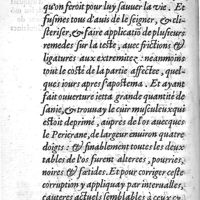 qu'on feroit pour luy sauuer la vie. Et
fusmes tous d'auis de le seigner, & cli-
steriser, & faire applicatiō de plusieurs
remedes sur la teste, auec frictions &
ligatures aux extremitez: neanmoins
tout le costé de la partie affectee, quel-
ques iours apres s'apostema. Et ayant
fait ouuerture issit grande quantité de
sanie, & trouuay le cuir musculeux qui
estoit deprimé, aupres de l'os auecques
le Pericrane, de largeur enuiron quatre
doigts: & finablement toutes les deux
tables de l'os furent alterees, pourries,
noires & fœtides. Et pour corriger ceste
corruption y appliquay par interualles,
cauteres actuels semblables à ceux cy